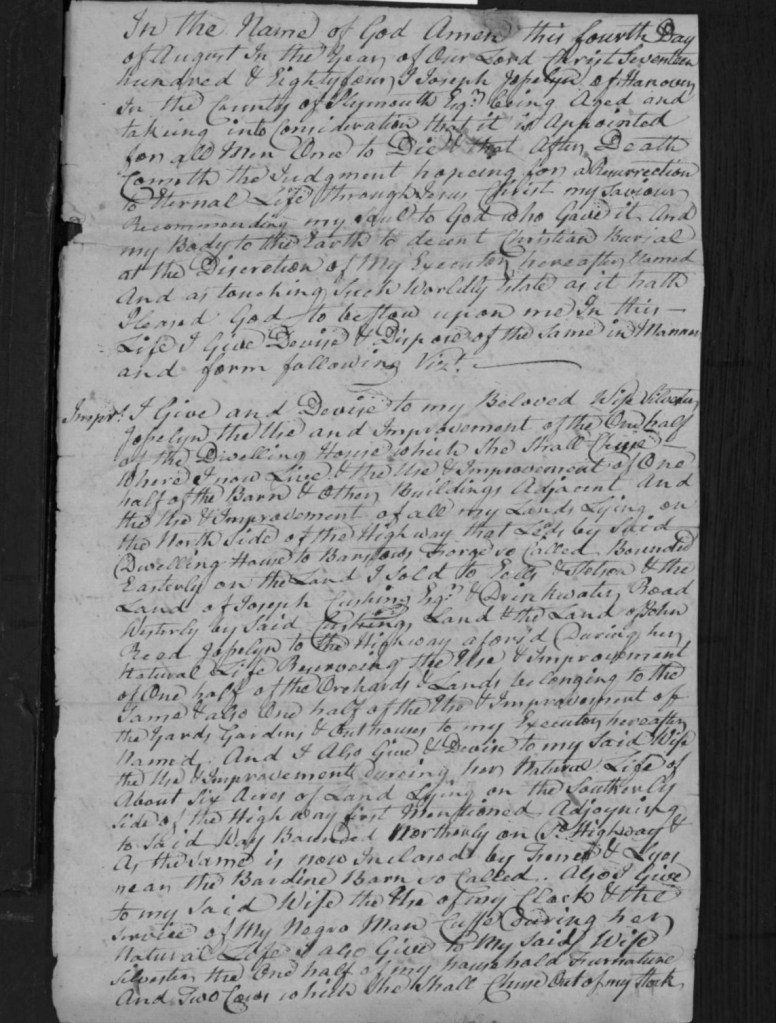 In the Name of God Amen this fourth Day
of August In the Year of Our Lord Christ Seventeen
hundred & Eightyfour, I Joseph Josselyn of Hanover
In the County of Plymouth Esqr. being Aged and
taking into Consideration that it is Appointed
for all Men Once to Die & that After Death
Cometh the Judgment hopeing for a Resurrection
to Eternal Life through Jesus Christ my Saviour
Recommending my Soul to God who Gave it And
my Body to the Earth to decent Christian Burial
at the Discretion of My Executor, hereafter Named
And as touching Such Worldly Estate as it hath
Pleased God to bestow upon me In this
Life I Give Devise & Dispose of the Same in Manner
and form following Vizt.
Imprs. I Give and Devise to my Beloved Wife Silvester
Josselyn the Use and Improvement of the One half
of the Dwelling House which She Shall Chuse
Where I now Live & the Use & Improvement of One
half of the Barn & Other Buildings Adjacent And
the Use & Improvement of all my Lands Lying on
the North Side of the Highway that Leds by Said
Dwelling House to Barstows Forge so Called Bounded
Easterly on the Land I Sold to Eells & Stetson & the
Land of Joseph Cushing Esqr. & Drinkwater Road
Westerly by Said Cushings Land & the Land of John
Read Josselyn to the Highway aforsd During her
Natural Life Reserveing the Use & Improvement
of One half of the Orchards & Lands belonging to the
Same & also One half of the Use & Improvement of
the Yards Gardins & Outhouses to my Executor hereafter
Named. And I Also Give & Devise to my Said Wife
the Use & Improvement dureing her Natural Life of
About Six Acres of Land Lying on the Southerly
Side of the Highway first Mentioned Adjoyning
to Said Way Bounded Northerly on Sd. Highway &
As the Same is now Inclosed by Fence & Lyes
near the Bardine Barn so Called. Also I Give
to my Said Wife the Use of my Clock & the
Service of My Negro Man Cuffe During her
Natural Life I also Give to My Said Wife
Silvester the One half of my household Furnature
And Two Cows which She Shall Chuse Out of my Stock